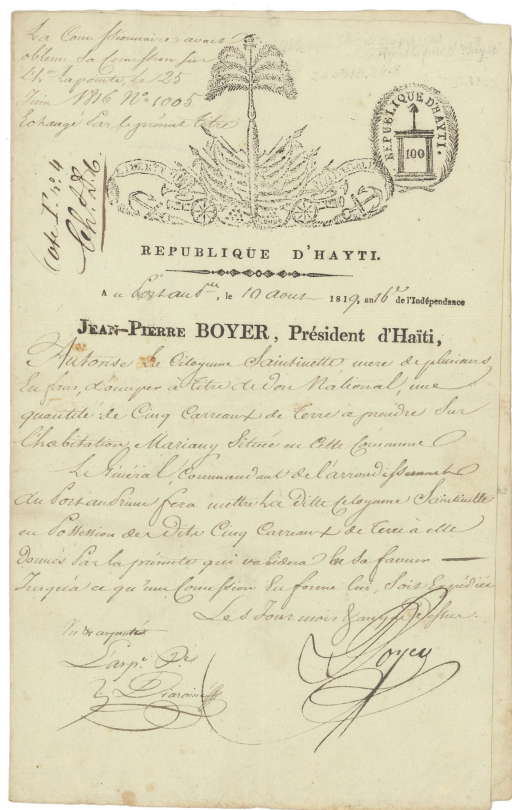 La Comissionnaire avait
obtenu sa Comission sur
l'h.on Lapointe, le 25
Juin 1816 N.o 1005
Echangé Par le présent titre
Cote 1.re n.o 4
REPUBLIQUE D'HAYTI.
100
LIBERTÉ
REPUBLIQUE D'HAYTI.
A u Port au P.ce, le 10 aout 1819, an 16.e de l'Indépendance
JEAN-PIERRE BOYER, Président d'Haïti,
Autorise La Citoyenne Saintinette, mere de plusieurs
Enfans, d'occuper à titre de don National, une
quantité de Cinq Carreaux de terre à prendre sur
L'habitation Mariany Située en Cette Commune
Le Général, Commandant de l'arrondissement
du Port au Prince fera mettre La ditte Citoyenne Saintinette
en Possession des Dits Cinq Carreaux de terre à elle
Donnés Par la présente qui validera en sa faveur
Jusqu'à ce qu'une Comission En forme lui Soit Expédiée
Les Jour mois & an que dessus.
Boyer
L'arp.r